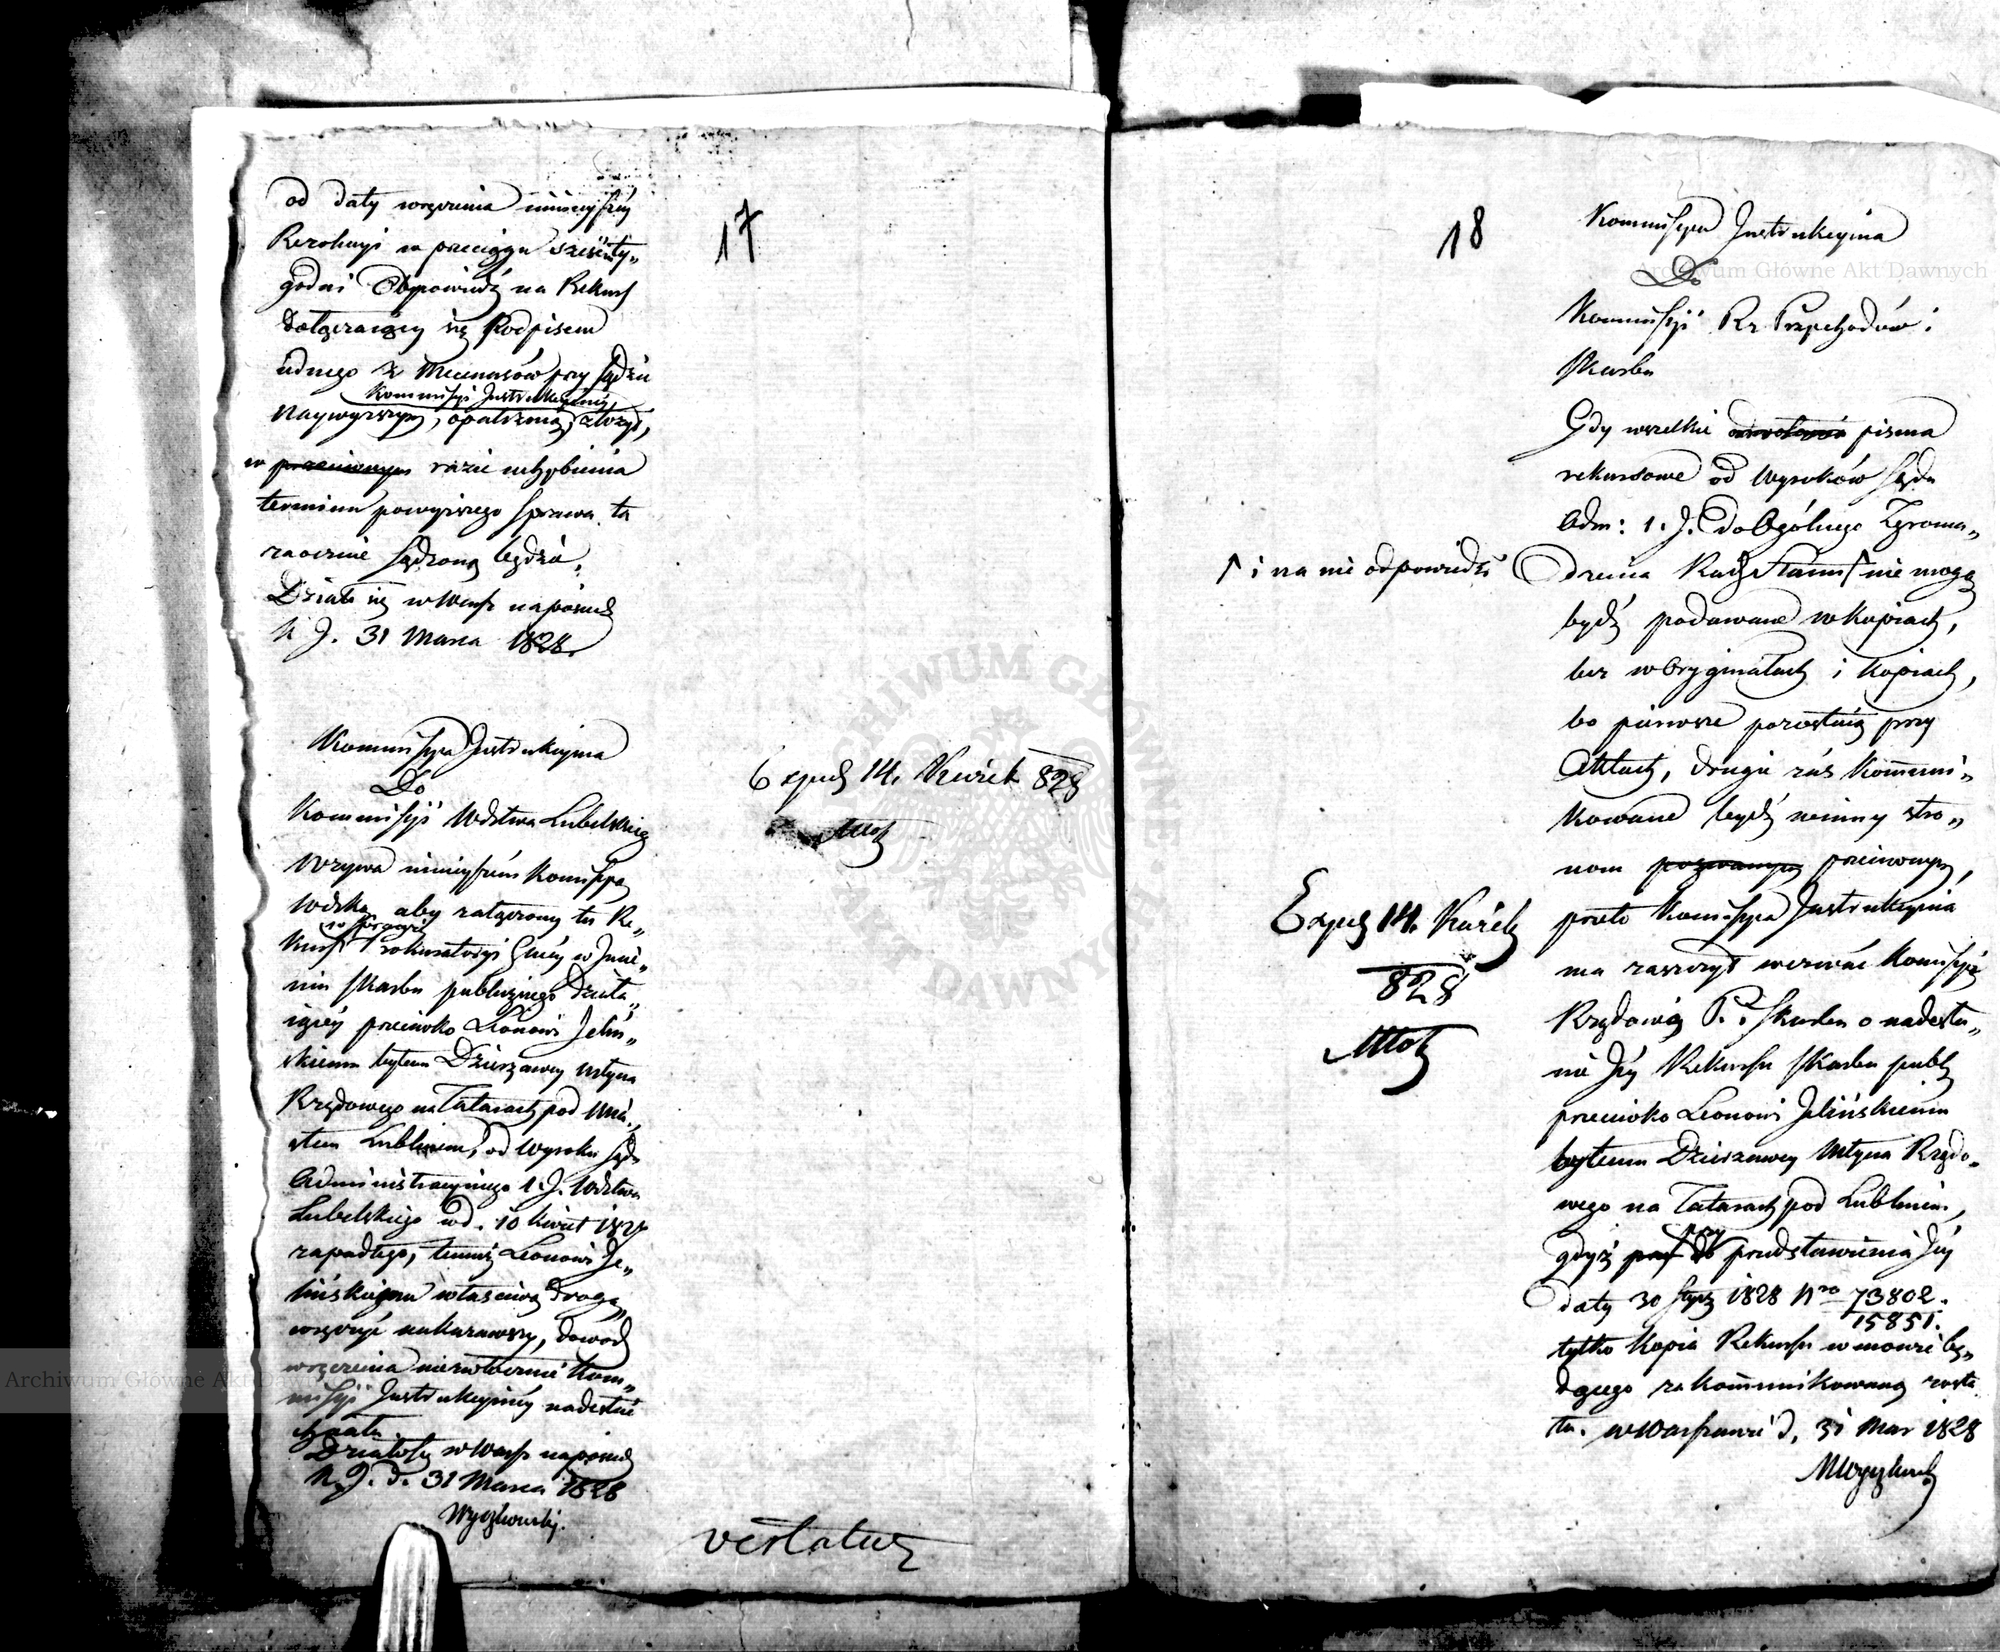 17
od daty wręczenia ninieyszéy
Rezolucyi w przeciągu sześć ty„
godni Odpowiedź na Rekurs
dołączaiący się Podpisem
iednego z Mecenasów przy Sądzie
Kommissyi Instrukcyinéy
Naywyższym, opatrzoną złożył,
w przeciwnym razie uchybienia
terminu powyższego sprawa ta
zaocznie sądzoną będzie.
Działo się w Warsz na posiedz
K J. 31 Marca 1828.
Kommissya Instrukcyina
Do
Kommissyi Wdztwa Lubelskiego
Wzywa ninieyszém Kommissyą
Wdzką aby załączony tu Re„
w sprawie
kurs Prokuratoryi Gnéy w Imie„
niu Skarbu publicznego działa„
iącéy przeciwko Leonowi Jeliń„
skiemu byłemu Dzierzawcy Młyna
Rządowego na Tatarach pod Mia„
stem Lublinem, od Wyroku Sądu
Administracyinego 1. J. Wdztwa
Lubelskiego w d. 10 Kwiet 1827
zapadłego, temuż Leonowi Je„
lińskiemu właściwą drogą
wręczyć nakazawszy, dowód
wręczenia niezwłocznie Kom„
missyi Instrukcyinéy nadesłać
chciała.
Działo się w Warsz na posiedz
K. J. d. 31 Marca 1828
Wyczechowski.
Exped 14. Kwiet 828
vertatur
18
Kommissya Instrukcyina
Do
Kommissyi Rz. Przychodów i
Skarbu
Gdy wszelkie pisma
rekursowe od Wyroków Sądu
Adm: 1. J. do Ogólnego Zgroma„
dzenia Rady Stanu nie mogą
i na nie odpowiedzi
bydź podawane w kopiach,
lecz w Oryginałach i kopiach,
bo pierwsze pozostaią przy
Aktach, drugie zaś kommuni„
kowane bydź winny stro„
nom przeciwnym,
przeto Kommissya Instrukcyina
ma zaszczyt wezwać Kommissyą
Rządową P. i Skarbu o nadesła„
nie Jéy Rekursu Skarbu publ
przeciwko Leonowi Jelińskiemu
byłemu Dzierzawcy Młyna Rządo„
wego na Tatarach pod Lublinem,
gdyż przy przedstawieniu Jéy
daty 30 Stycz 1828 Nro 73802.
15851.
tylko kopia Rekursu w mowie bę„
dącego zakommunikowaną zosta
ła. w Warszawie d. 31 Mar 1828
Exped 14. Kwiet
828